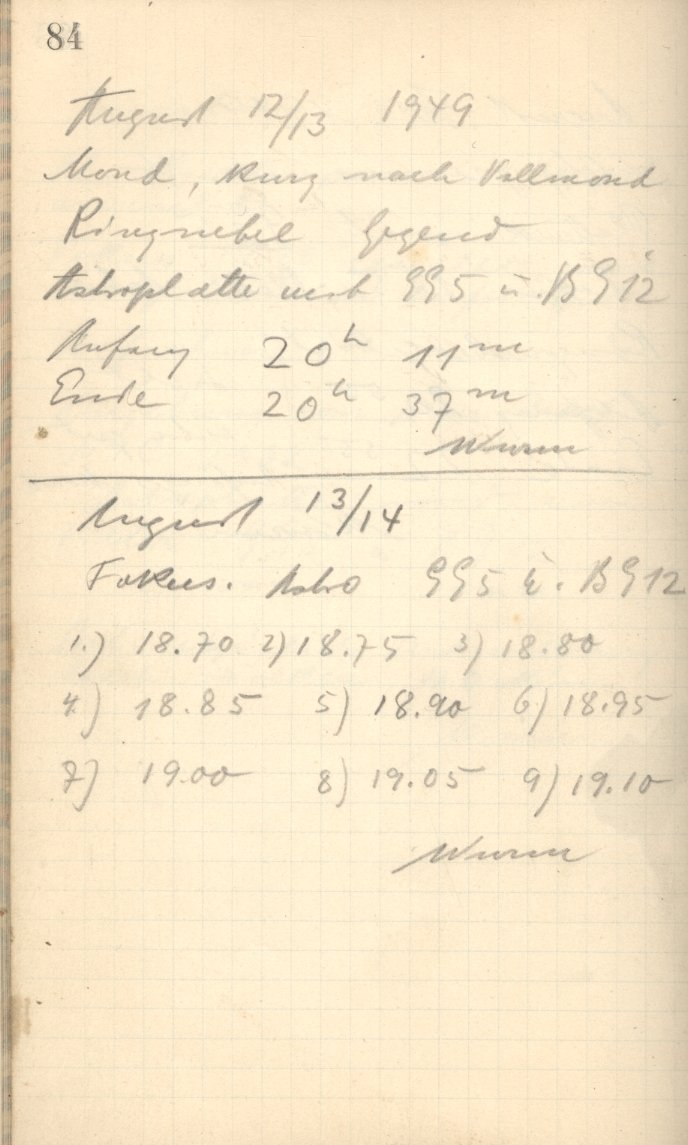 84
August 12/13 1949
Mond, kurz nach Vollmond
Ringnebel Gegend
Astroplatte mit GG5 u. BG12
Anfang 20h 11m
Ende 20h 37m
Wurm
August 13/14
Fokus. Astro GG5 u. BG12
1.) 18.70 2) 18.75 3) 18.80
4.) 18.85 5) 18.90 6) 18.95
7) 19.00 8) 19.05 9) 19.10
Wurm